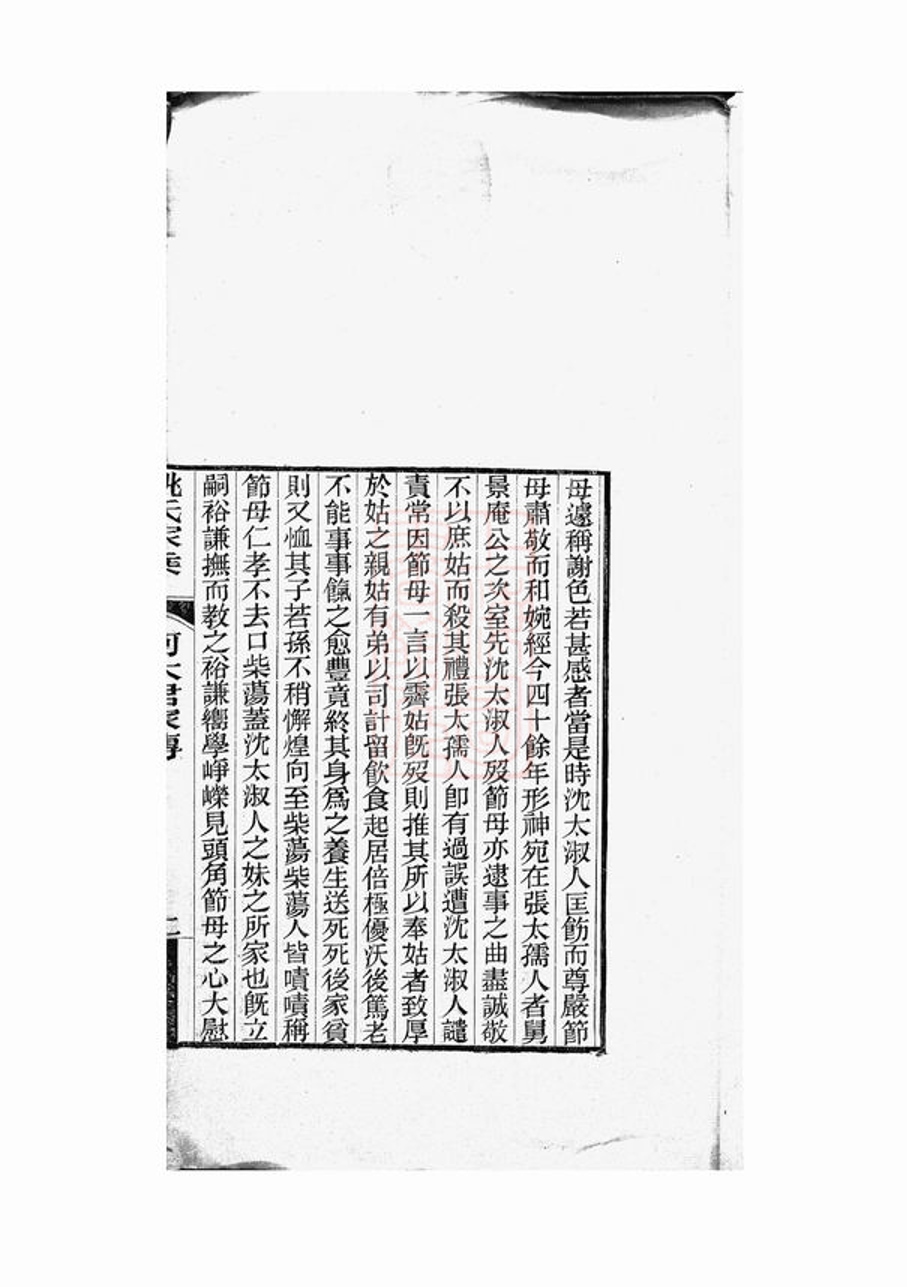 母遽稱謝色若甚感者當是時沈太淑人匡飭而尊嚴節
母肅敬而和婉經今四十餘年形神宛在張太孺人者舅
景庵公之次室先沈太淑人歿節母亦逮事之曲盡誠敬
不以庶姑而殺其禮張太孺人卽有過誤遭沈太淑人譴
責常因節母一言以霽姑旣歿則推其所以奉姑者致厚
於姑之親姑有弟以司計留飮食起居倍極優沃後篤老
不能事事餼之愈豐竟終其身爲之養生送死死後家貧
則又恤其子若孫不稍懈煌向至柴蕩柴蕩人皆嘖嘖稱
節母仁孝不去口柴蕩蓋沈太淑人之妹之所家也旣立
嗣裕謙撫而教之裕謙嚮學崢嶸見頭角節母之心大慰
姚氏家乘 何太君家傳